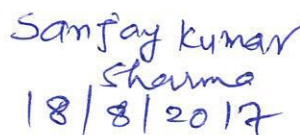 Sanjay Kumar
Sharma
18/8/2017